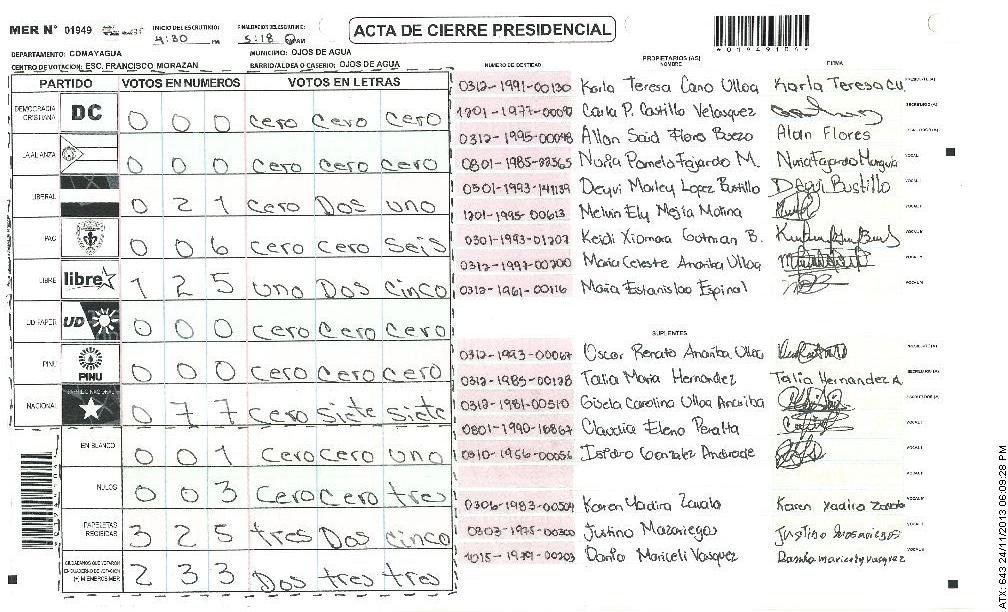 MER N° 01949
INICIO DEL ESCRUTINIO: 4:30 PM
FINALIZACION DEL ESCRUTINIO: 5:18 PM
ACTA DE CIERRE PRESIDENCIAL
DEPARTAMENTO: COMAYAGUA
MUNICIPIO: OJOS DE AGUA
CENTRO DE VOTACION: ESC. FRANCISCO MORAZAN
BARRIO/ALDEA O CASERIO: OJOS DE AGUA
PARTIDO VOTOS EN NUMEROS VOTOS EN LETRAS
DEMOCRACIA CRISTIANA DC 0 0 0 cero cero cero
LA ALIANZA 0 0 0 cero cero cero
LIBERAL 0 2 1 cero Dos uno
PAC 0 0 6 cero cero seis
LIBRE libre 1 2 5 uno Dos cinco
UD FAPER UD 0 0 0 cero cero cero
PINU PINU 0 0 0 cero cero cero
NACIONAL 0 7 7 cero siete siete
EN BLANCO 0 0 1 cero cero uno
NULOS 0 0 3 cero cero tres
PAPELETAS RECIBIDAS 3 2 5 tres Dos cinco
CIUDADANOS QUE VOTARON EN CUADERNO DE VOTACION (+) MIEMBROS MER 2 3 3 Dos tres tres
NUMERO DE IDENTIDAD
PROPIETARIOS (AS)
NOMBRE
FIRMA
0312-1991-00130 Karla Teresa Cano Ulloa Karla Teresa C U.
Carla P. Castillo Velasquez
0312-1995-00048 Allan Said Flores Alan Flores
Nuria Pamela Fajardo M. Nuria Fajardo
Deyvi Lopez Bustillo
1201-1995-00613 Melvin Ely Mejia Molina
0301-1993-01207 Keidi Xiomara B.
Maria Celeste Anariba Ulloa
0312-1961-00116 Maria Estanislao Espinal
SUPLENTES
0312-1993-00067 Oscar Renato Anariba Ulloa
0312-1985-00128 Talia Maria Hernandez Talia Hernandez A
0312-1981-00510 Gisela Carolina Ulloa Anariba
0801-1990-10867 Claudia Elena Peralta
Isidro Gonzalez Andrade
0306-1983-00504 Karen Yadira Zavala Karen Yadira Zavala
Justino Mazariegos
Vasquez
ATX: 643 24/11/2013 06:09:28 PM